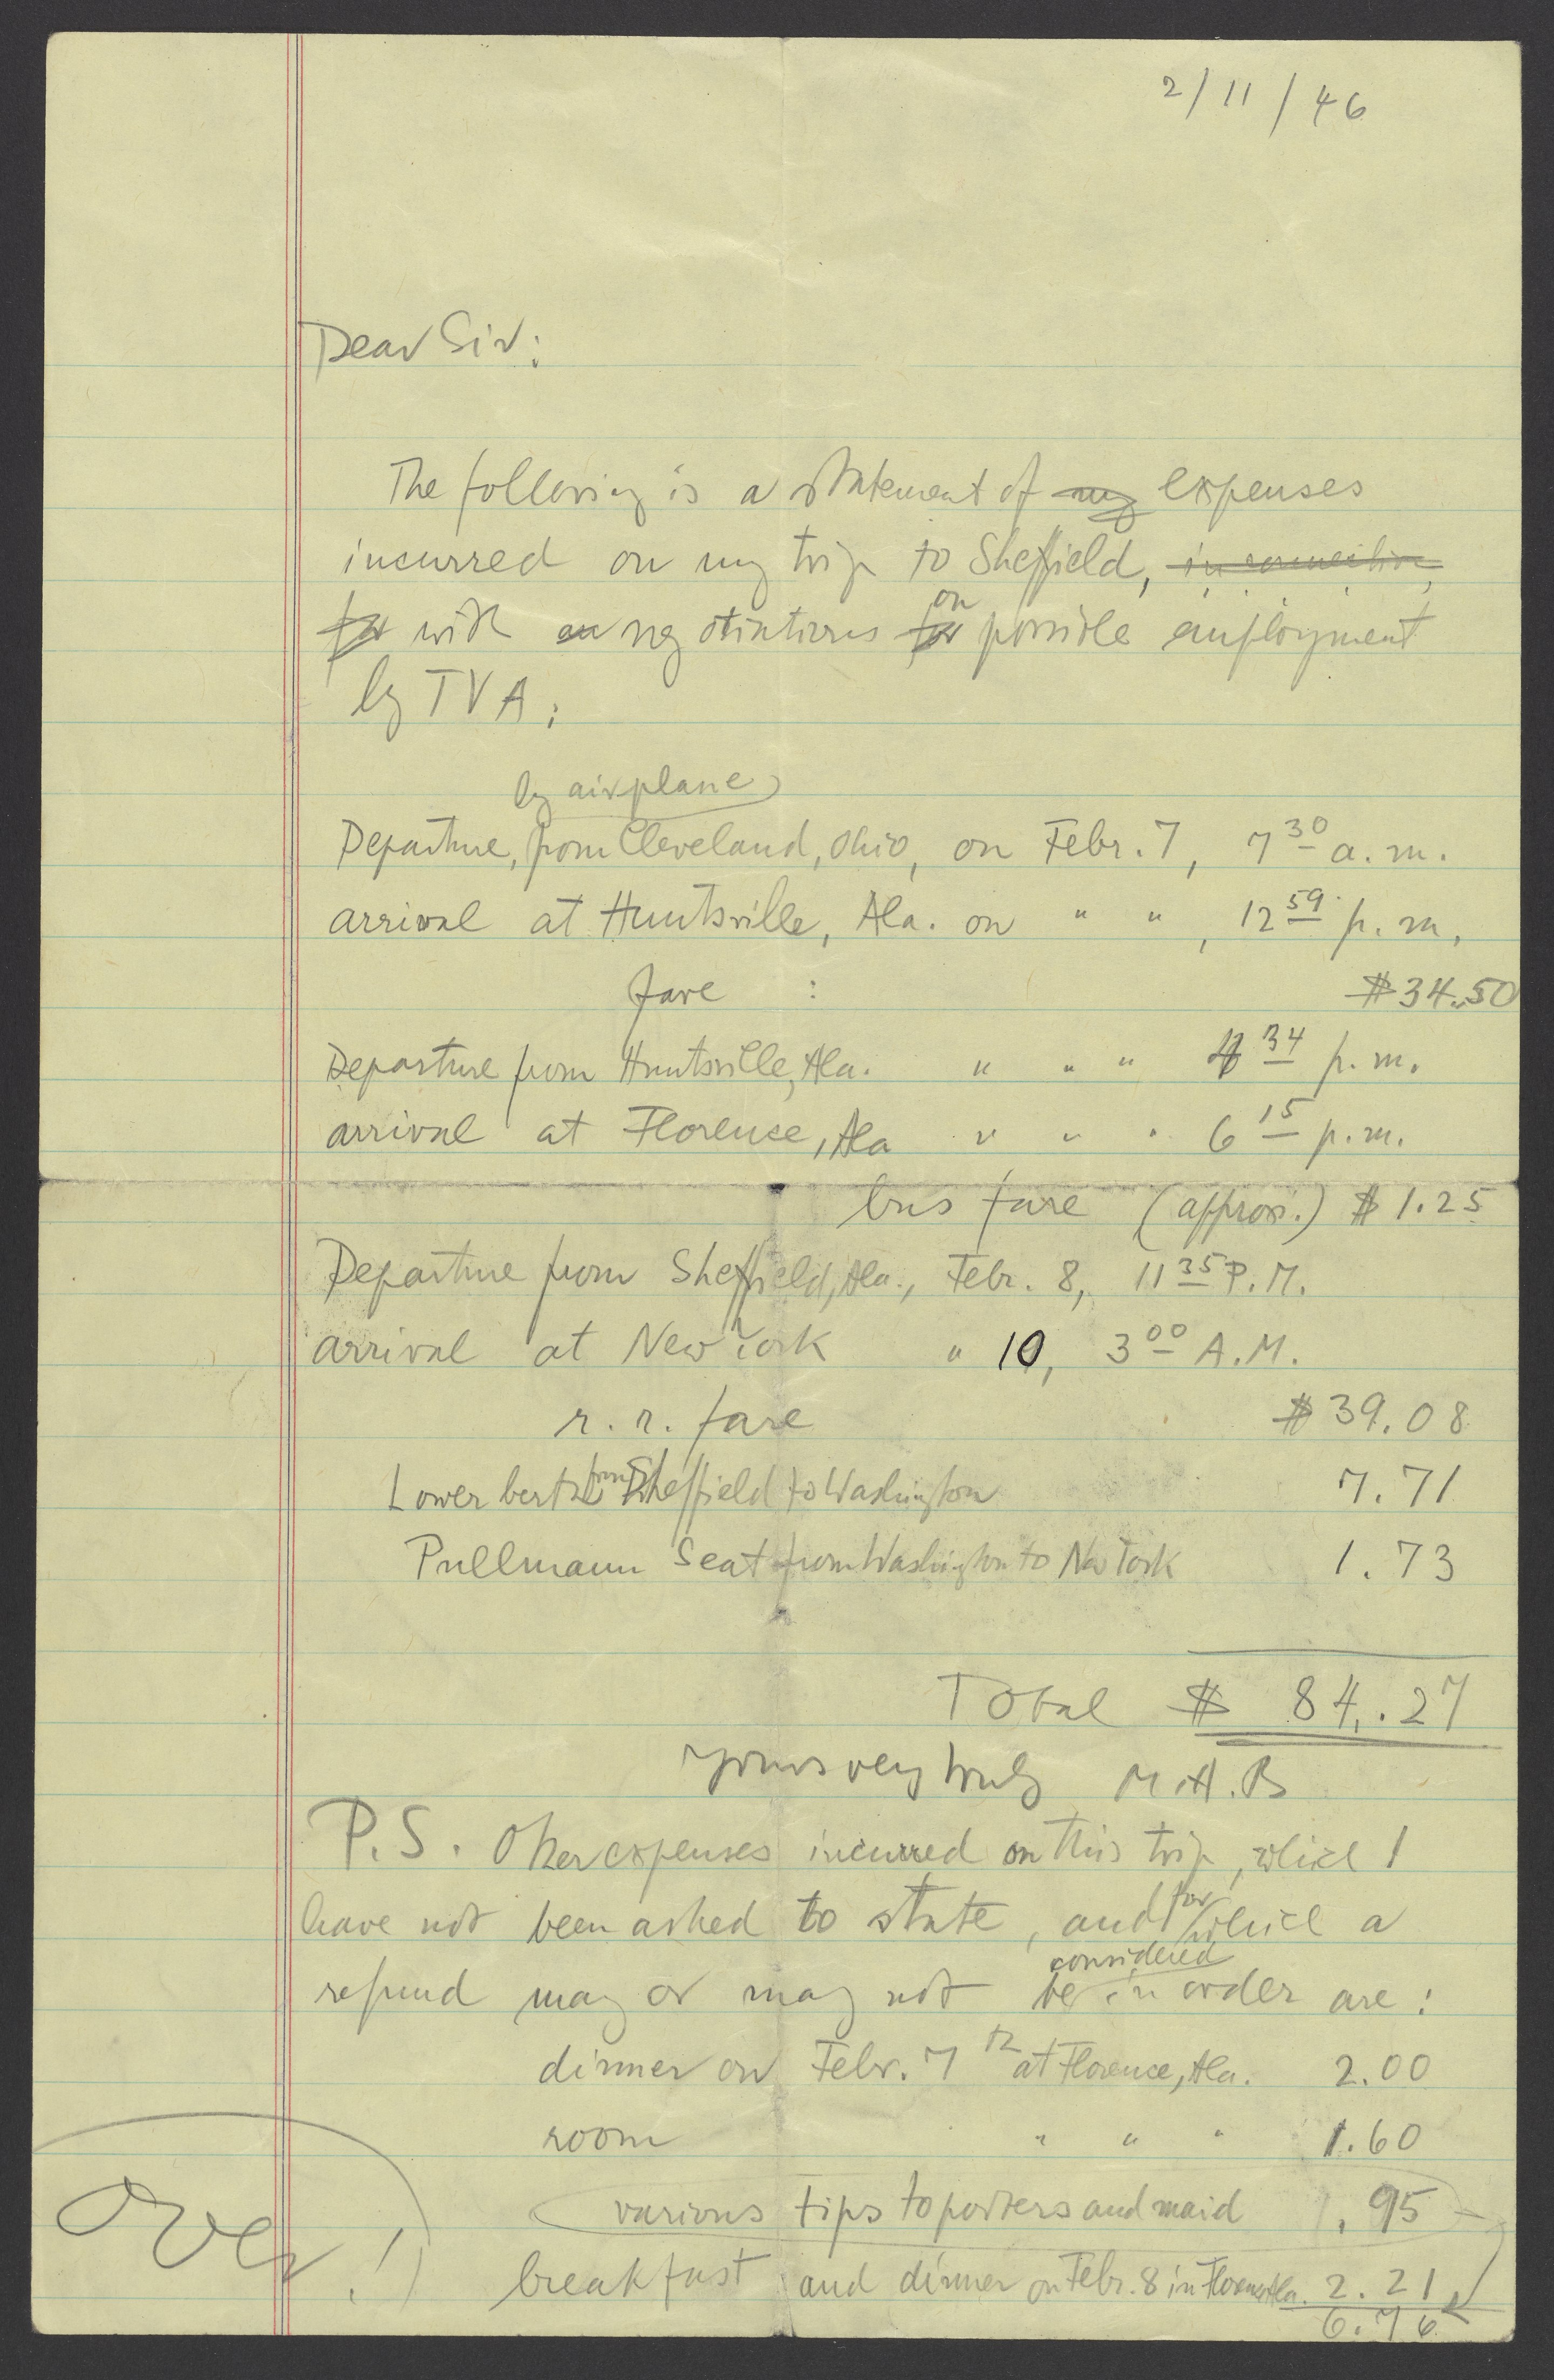 2/11/46
Dear Sir:
The following is a statement of my expenses
incurred on my trip to Sheffield, in connection
for with negotiations for on possible employment
by TVA:
by airplane
Departure, from Cleveland, Ohio, on Febr. 7, 7 30 a.m.
arrival at Huntsville, Ala. on " " , 12 59 p.m.
fare : $34.50
Departure from Huntsville, Ala. " " " 4 34 p.m.
arrival at Florence, Ala " " " 6 15 p.m.
bus fare (approx.) $1.25
Departure from Sheffield, Ala., Febr. 8, 11 35 P.M.
arrival at New York " 10, 3 00 A.M.
r.r. fare $39.08
Lower berth from Sheffield to Washington 7.71
Pullmann Seat from Washington to New York 1.73
Total $ 84.27
Yours very truly M.A.B
P.S. Other expenses incurred on this trip, which I
have not been asked to state, and for which a
considered
refund may or may not be in order are:
dinner on Febr. 7th at Florence, Ala. 2.00
room " " " 1.60
various tips to porters and maid .95
breakfast and dinner on Febr. 8 in Florence, Ala. 2.21
6.76
Over!